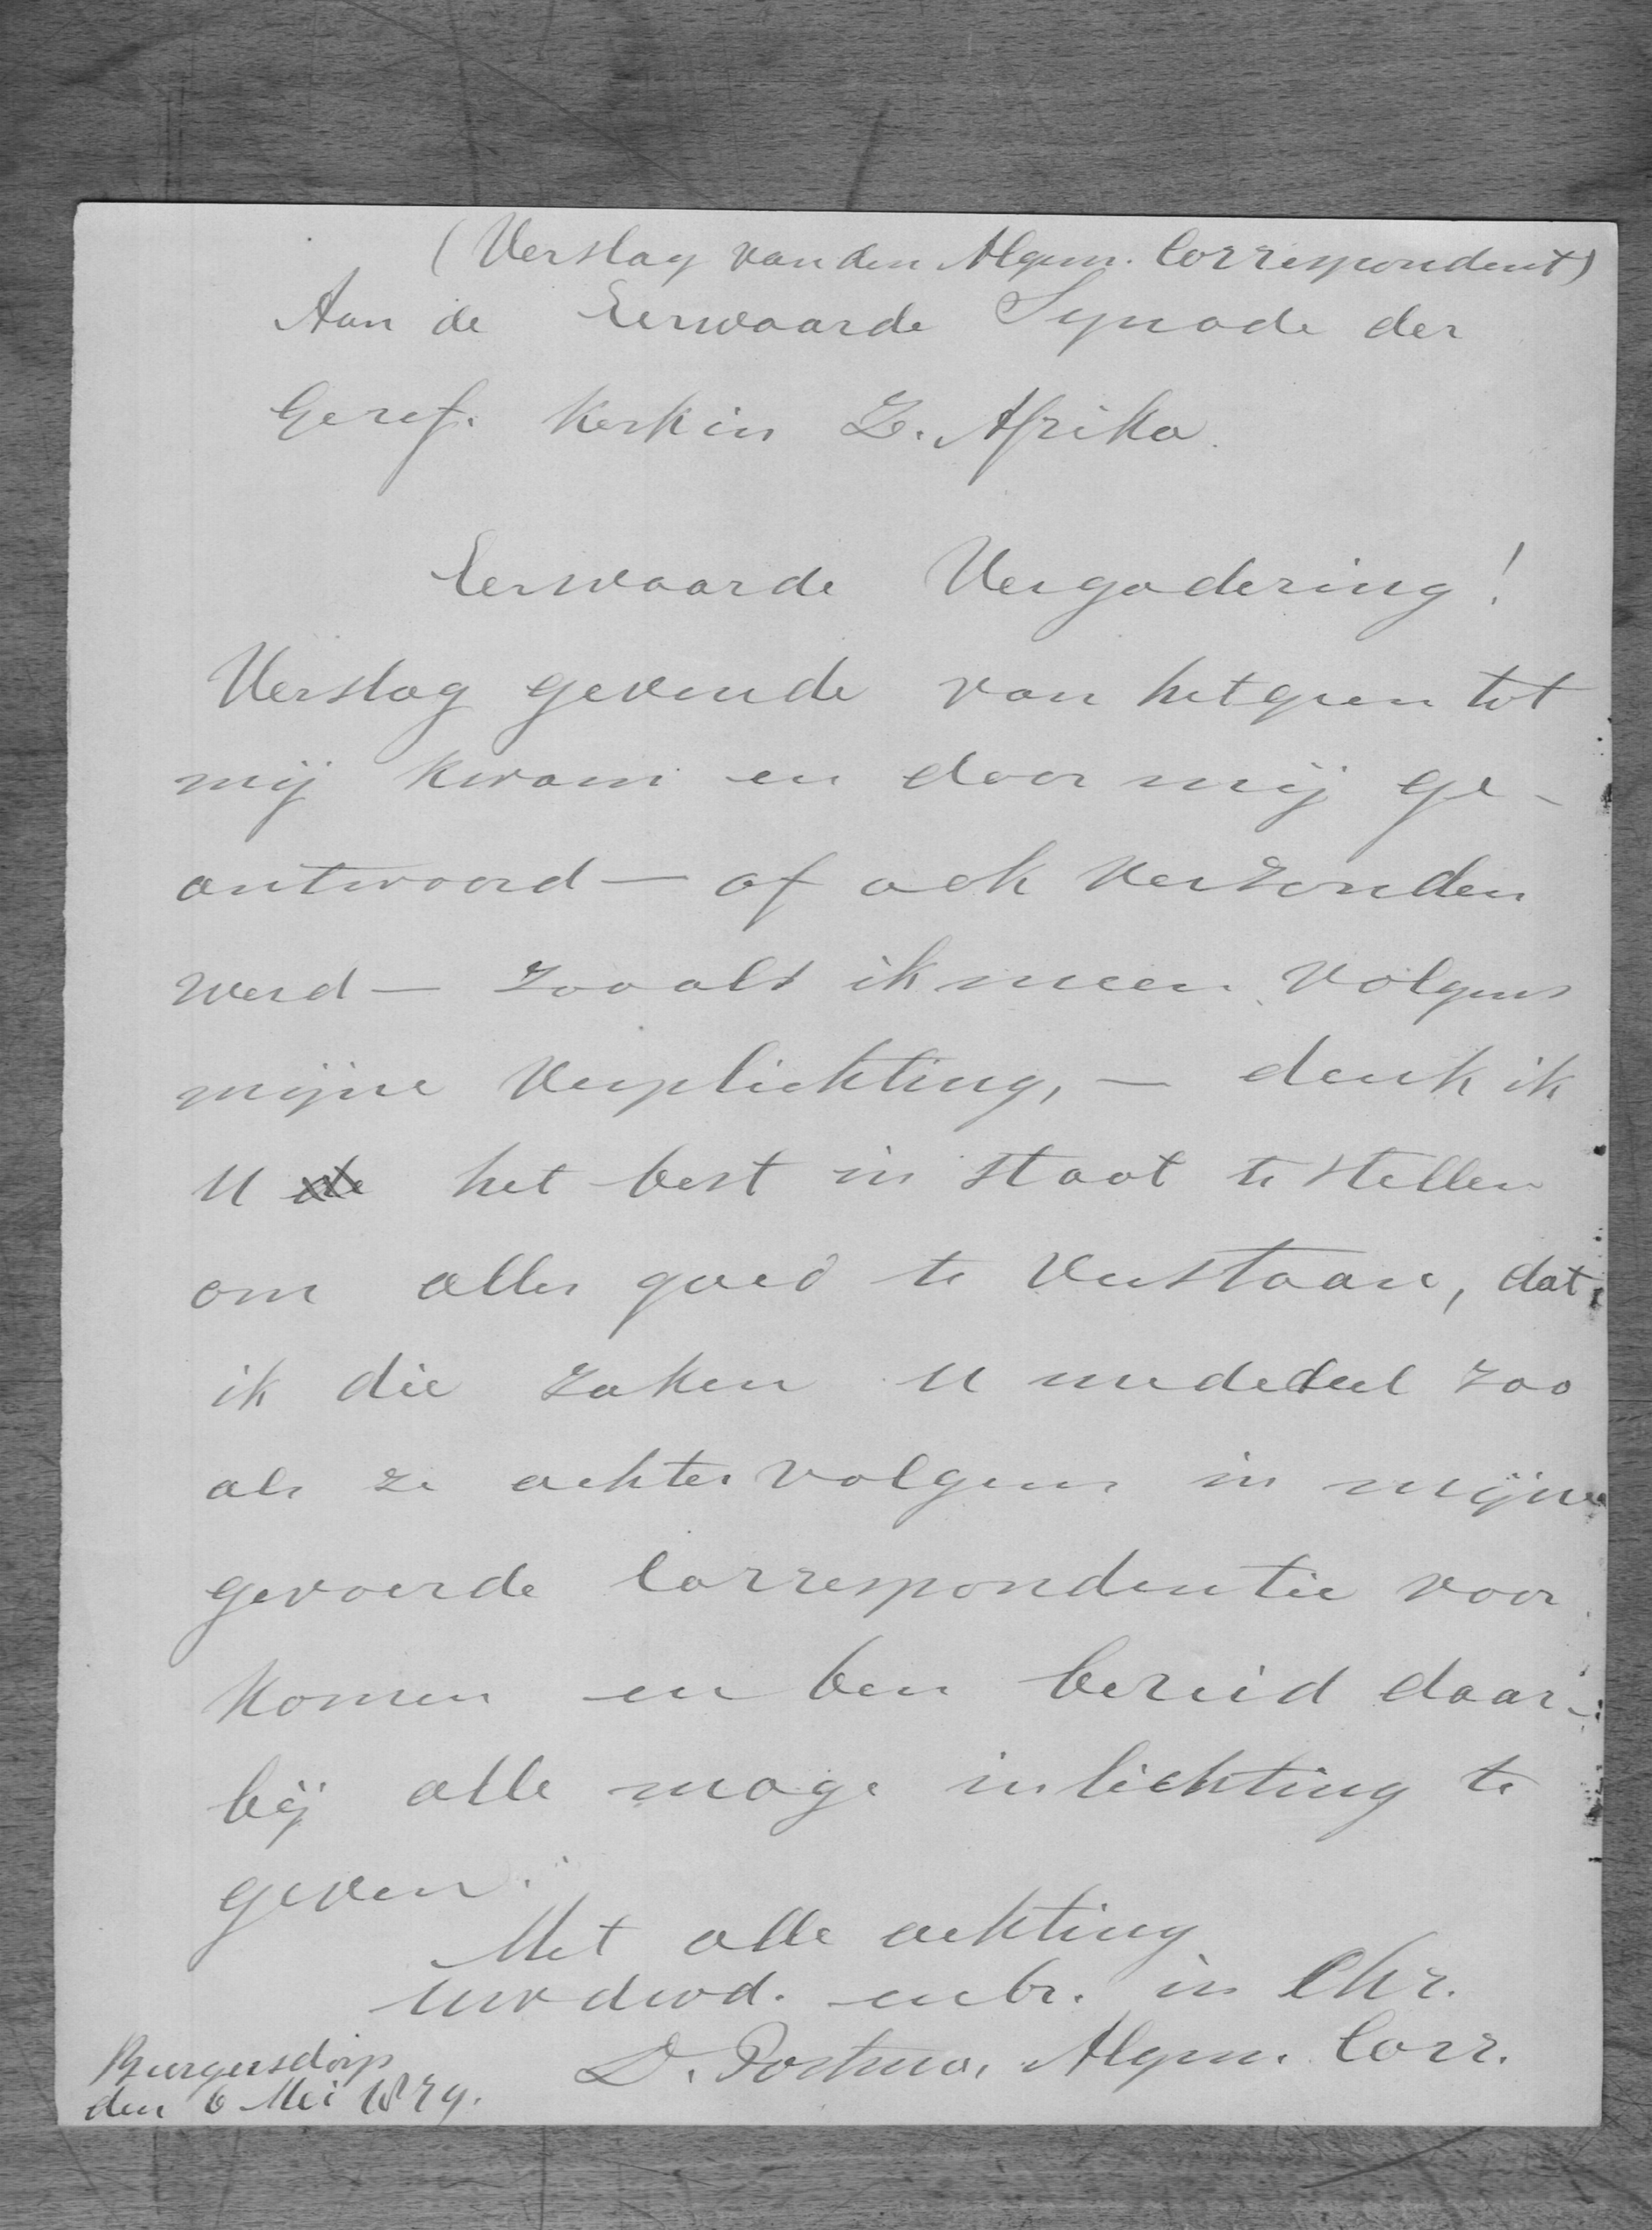 (Verslag van den Algem. Correspondent)
Aan de Eerwaarde Synode der
Geref. Kerk in Z. Afrika.
Eerwaarde Vergadering!
Verslag gevende van hetgeen tot
mij kwam en door mij ge-
antwoord — of ook verzonden
werd — zooals ik meen volgens
mijne verplichting, — denk ik
U de het best in staat te stellen
om alles goed te verstaan, dat
ik die zaken U mededeel zoo
als ze achtervolgens in mijne
gevoerde Correspondentie voor
komen en ben bereid daar-
bij alle moge inlichting te
geven.
Met alle achting
Uw dwd. en br. in Chr.
D. Postma, Algem. Corr.
Burgersdorp
den 6 Mei 1879.